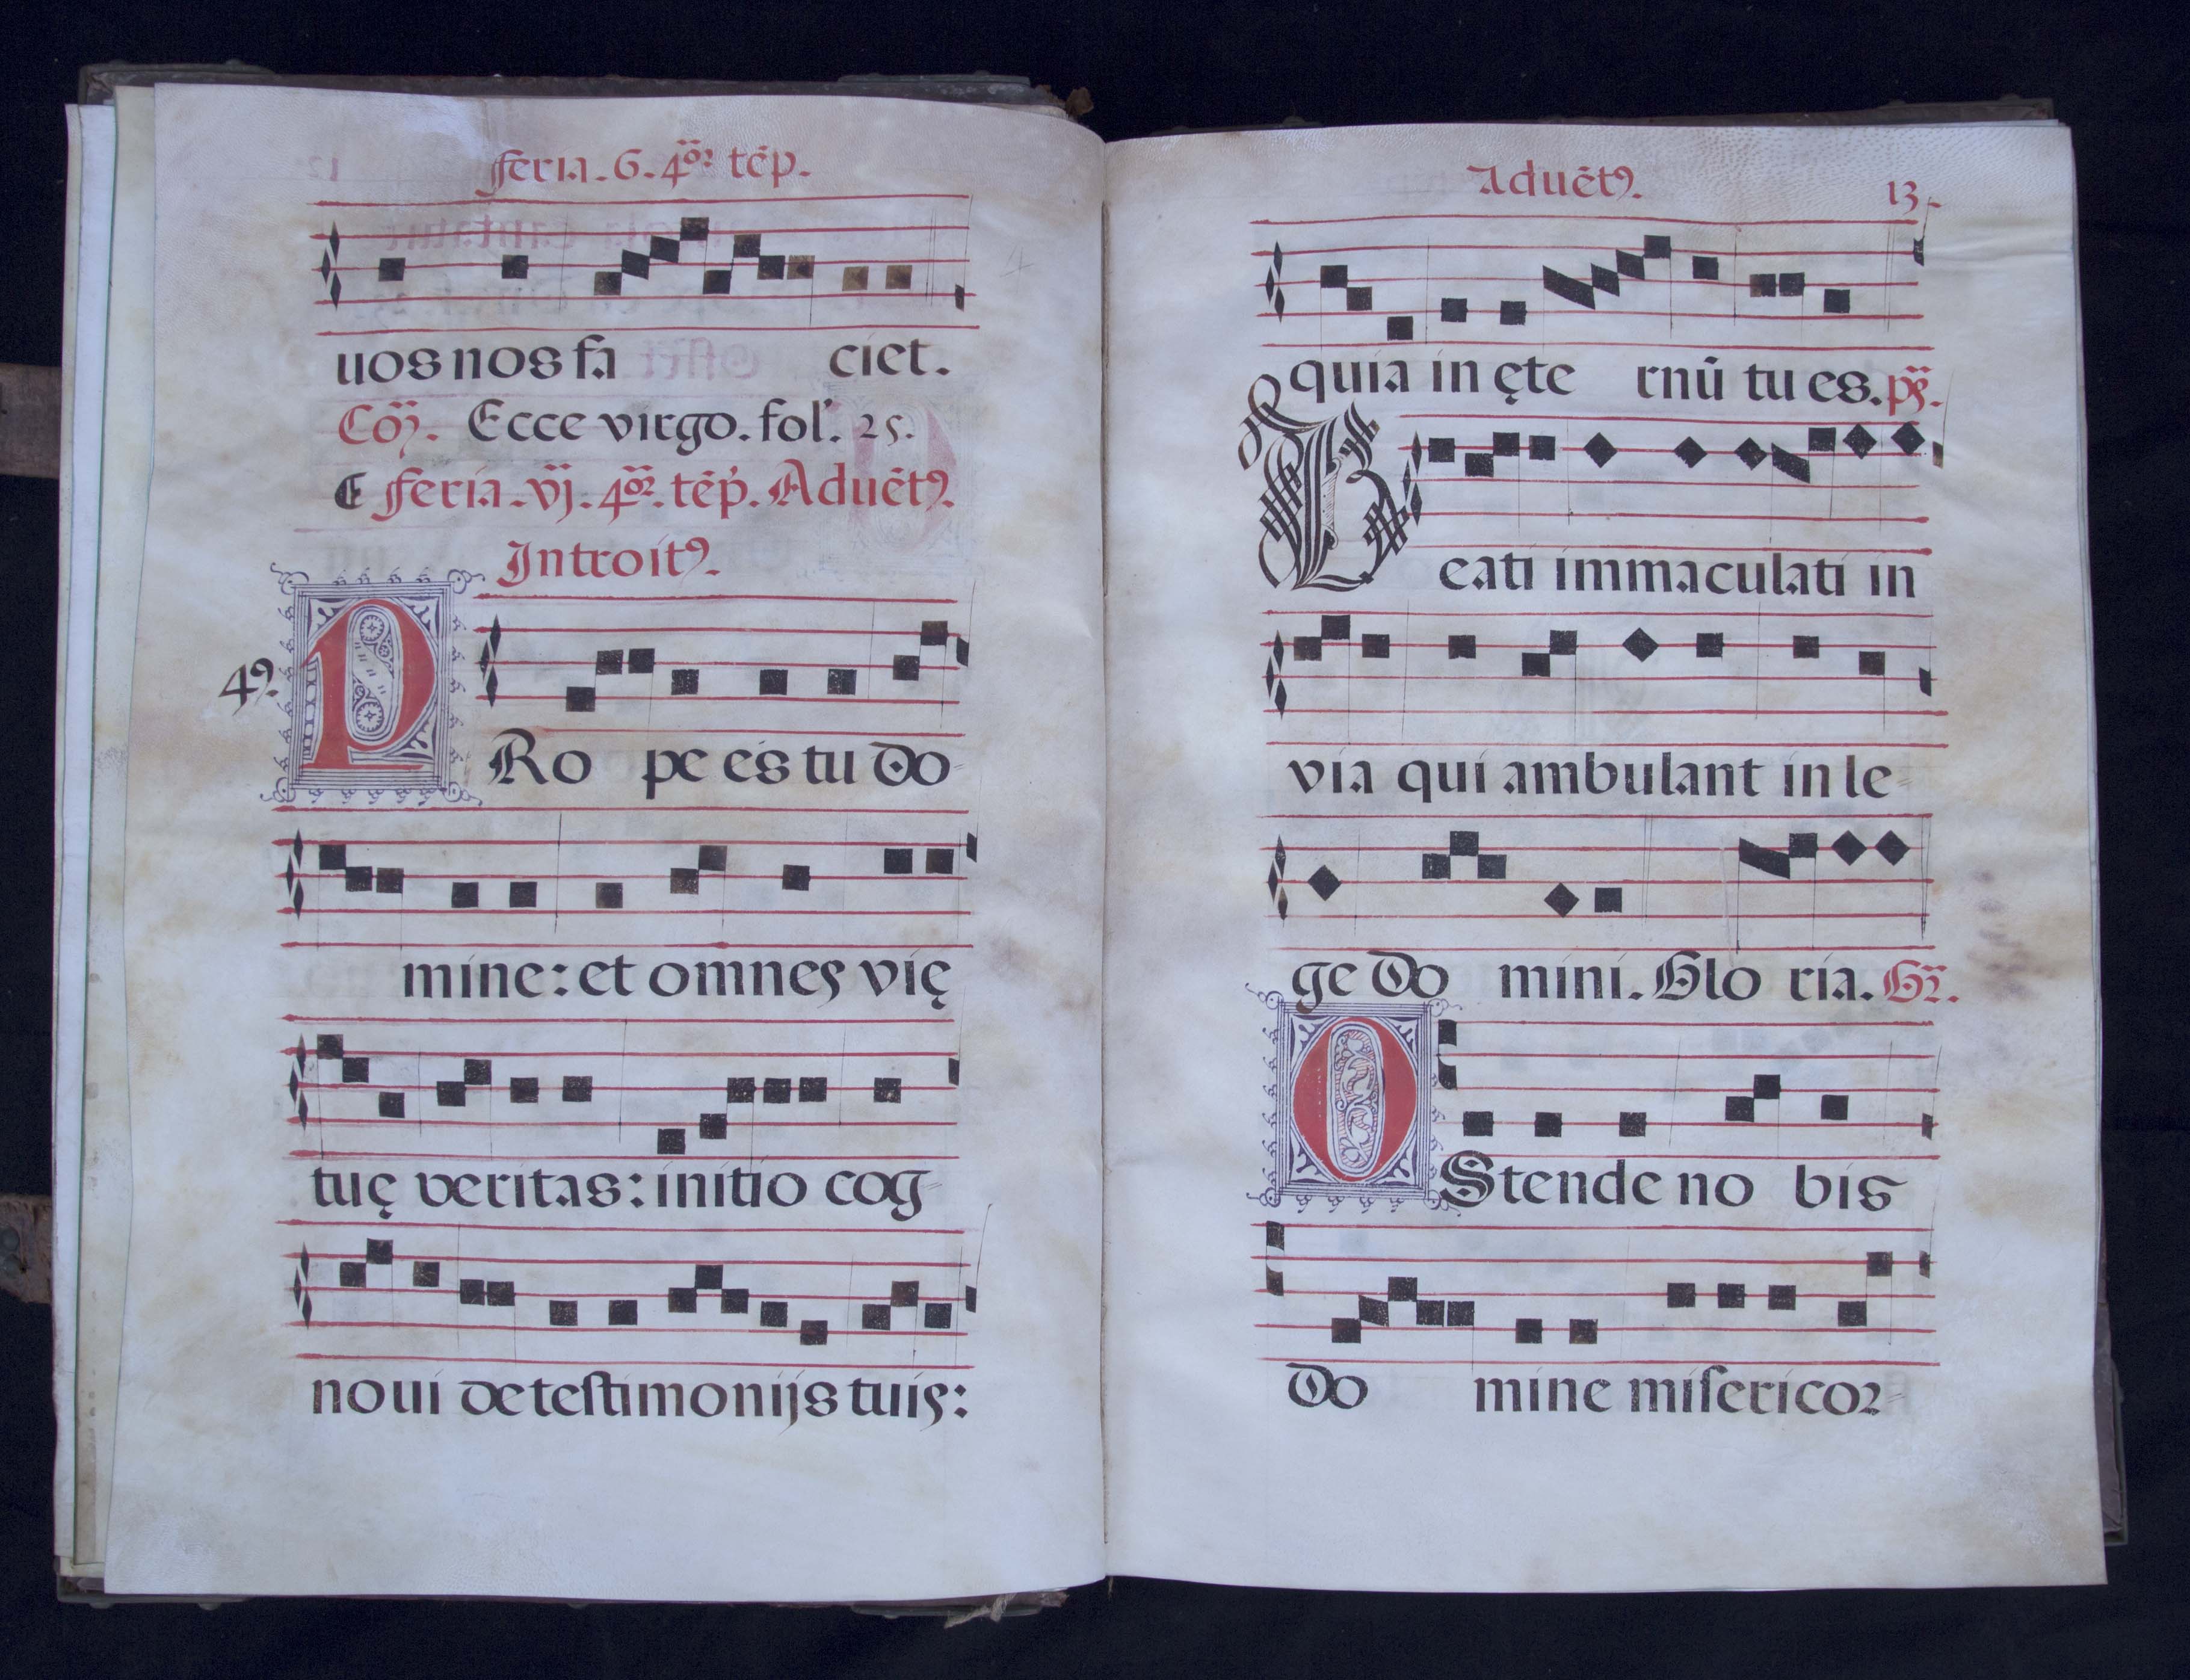 feria. 6. 4.or tēp.
uos nos fa ciet.
Cōɔ. Ecce virgo. fol. 25.
feria. vj. 4.or tēp. Aduētꝰ.
Introitꝰ.
4ꝰ.
PRo pe es tu do=
mine: et omnes vię
tuę veritas: initio cog=
noui de testimonijs tuis:
Aduētꝰ.
13.
quia in ęte rnū tu es. ps.
Beati immaculati in
via qui ambulant in le=
ge do mini. Glo ria. Gr.
OStende no bis
do mine misericor=